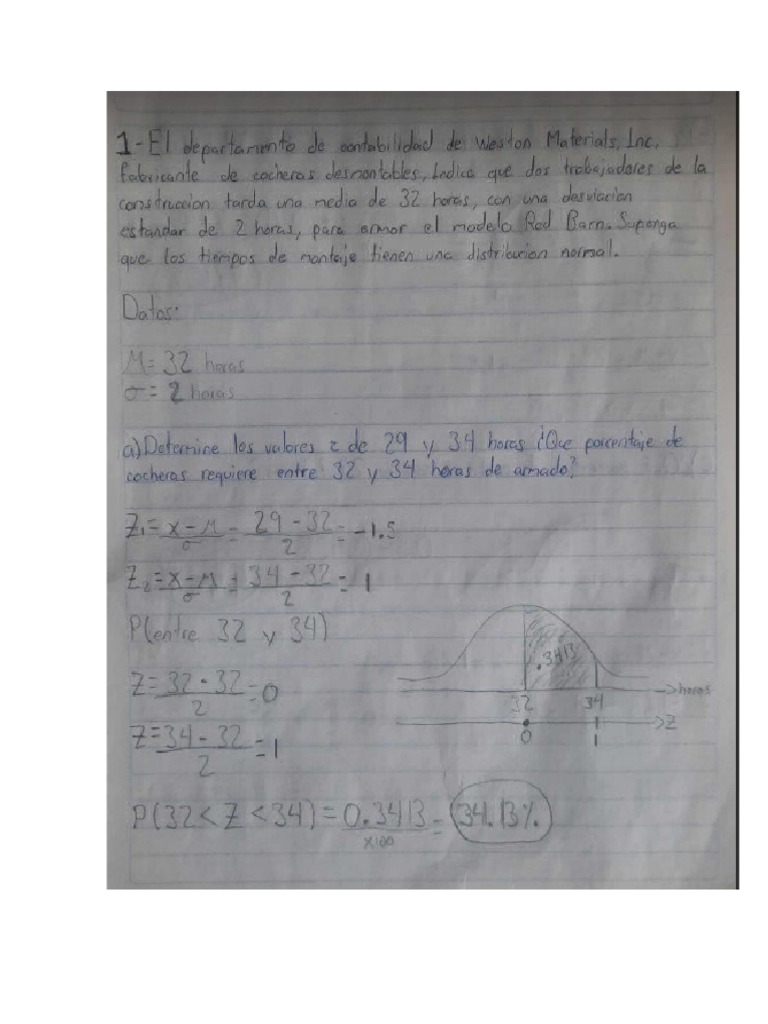 1-El departamento de contabilidad de Weston Materials, Inc,
fabricante de cocheras desmontables, indica que dos trabajadores de la
construccion tarda una media de 32 horas, con una desviacion
estandar de 2 horas, para armar el modelo Red Barn. Suponga
que los tiempos de montaje tienen una distribucion normal.
Datos:
M= 32 horas
σ= 2 horas
a)Determine los valores z de 29 y 34 horas ¿Que porcentaje de
cocheras requiere entre 32 y 34 horas de armado?
Z₁= x-M/σ = 29-32/2 = -1.5
Z₂= x-M/σ = 34-32/2 = 1
P(entre 32 y 34)
Z= 32-32/2 = 0
Z= 34-32/2 = 1
.3413
horas
32 34
Z
0 1
P(32 < Z < 34) = 0.3413 = 34.13%
x100